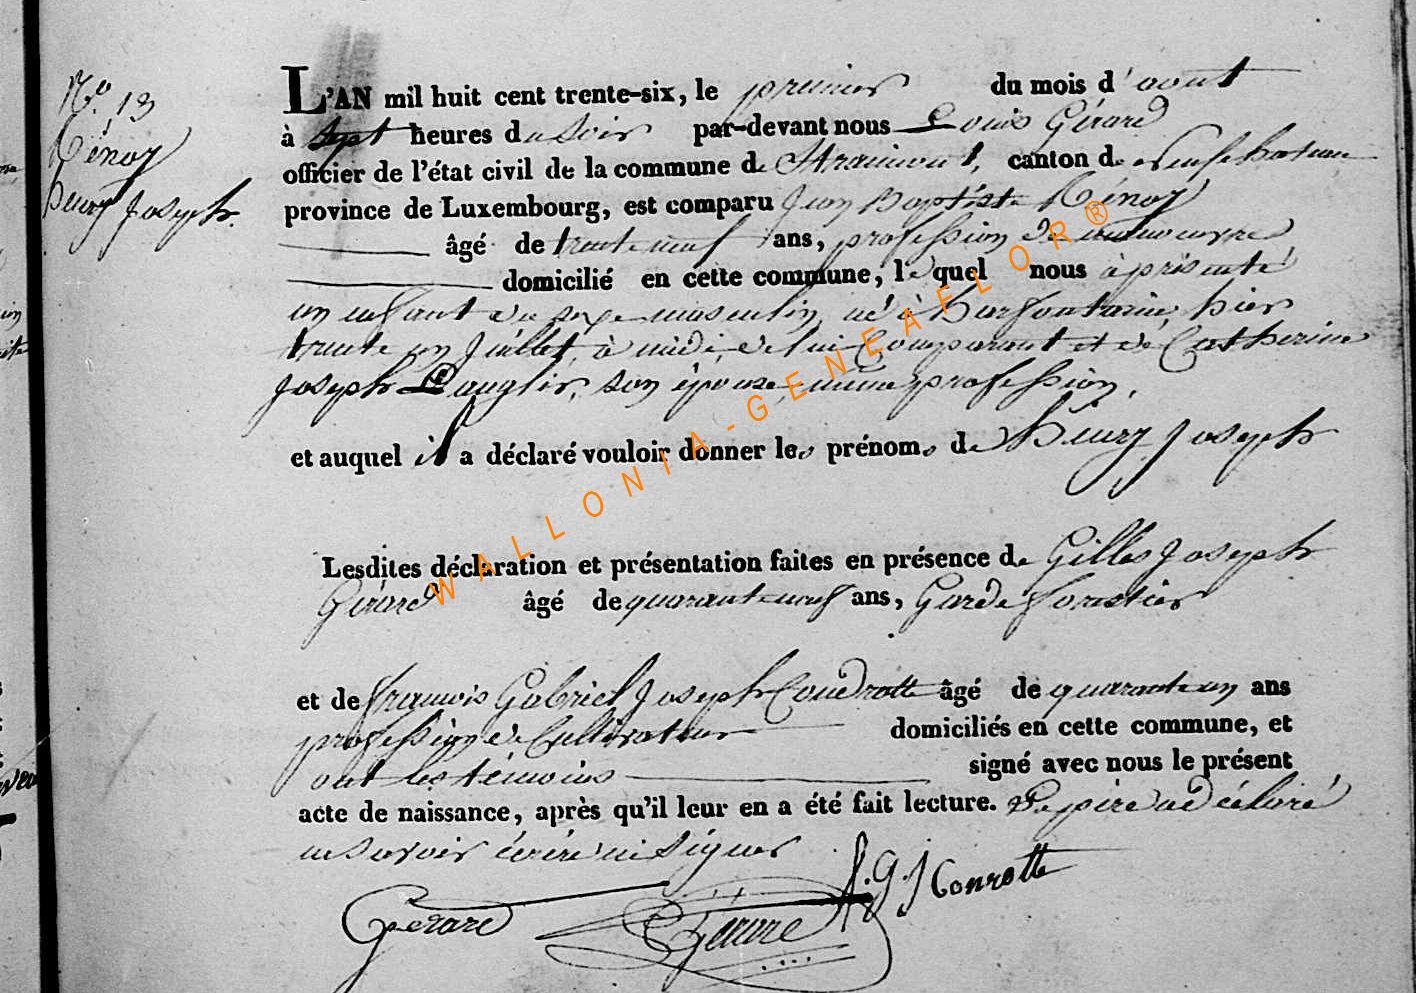 N.o 13
Ménoy
henry Joseph.
L'AN mil huit cent trente-six, le premier du mois d'aout
à sept heures du soir par-devant nous Louis Gérard
officier de l'état civil de la commune de Straimont, canton de neufchateau
province de Luxembourg, est comparu Jean Baptiste Ménoy
âgé de trente neuf ans, profession de manoeuvre
domicilié en cette commune, le quel nous à présenté
un enfant du sexe masculin, né à harfontaine, hier
trente un Juillet, à midi, de lui Comparant et de Catherine
Joseph Langlois, son épouse, même profession,
et auquel il a déclaré vouloir donner les prénoms de henry Joseph
Lesdites déclaration et présentation faites en présence de Gilles Joseph
Gérard âgé de quarante neuf ans, Garde forestier
et de françois Gabriel Joseph Conrotte âgé de quarante un ans
profession de Cultivateur domiciliés en cette commune, et
ont les témoins signé avec nous le présent
acte de naissance, après qu'il leur en a été fait lecture. Le père a déclaré
ne savoir écrire ni signer
Gerard Gérard f.g.J Conrotte
WALLONIA-GENEAFLOR®